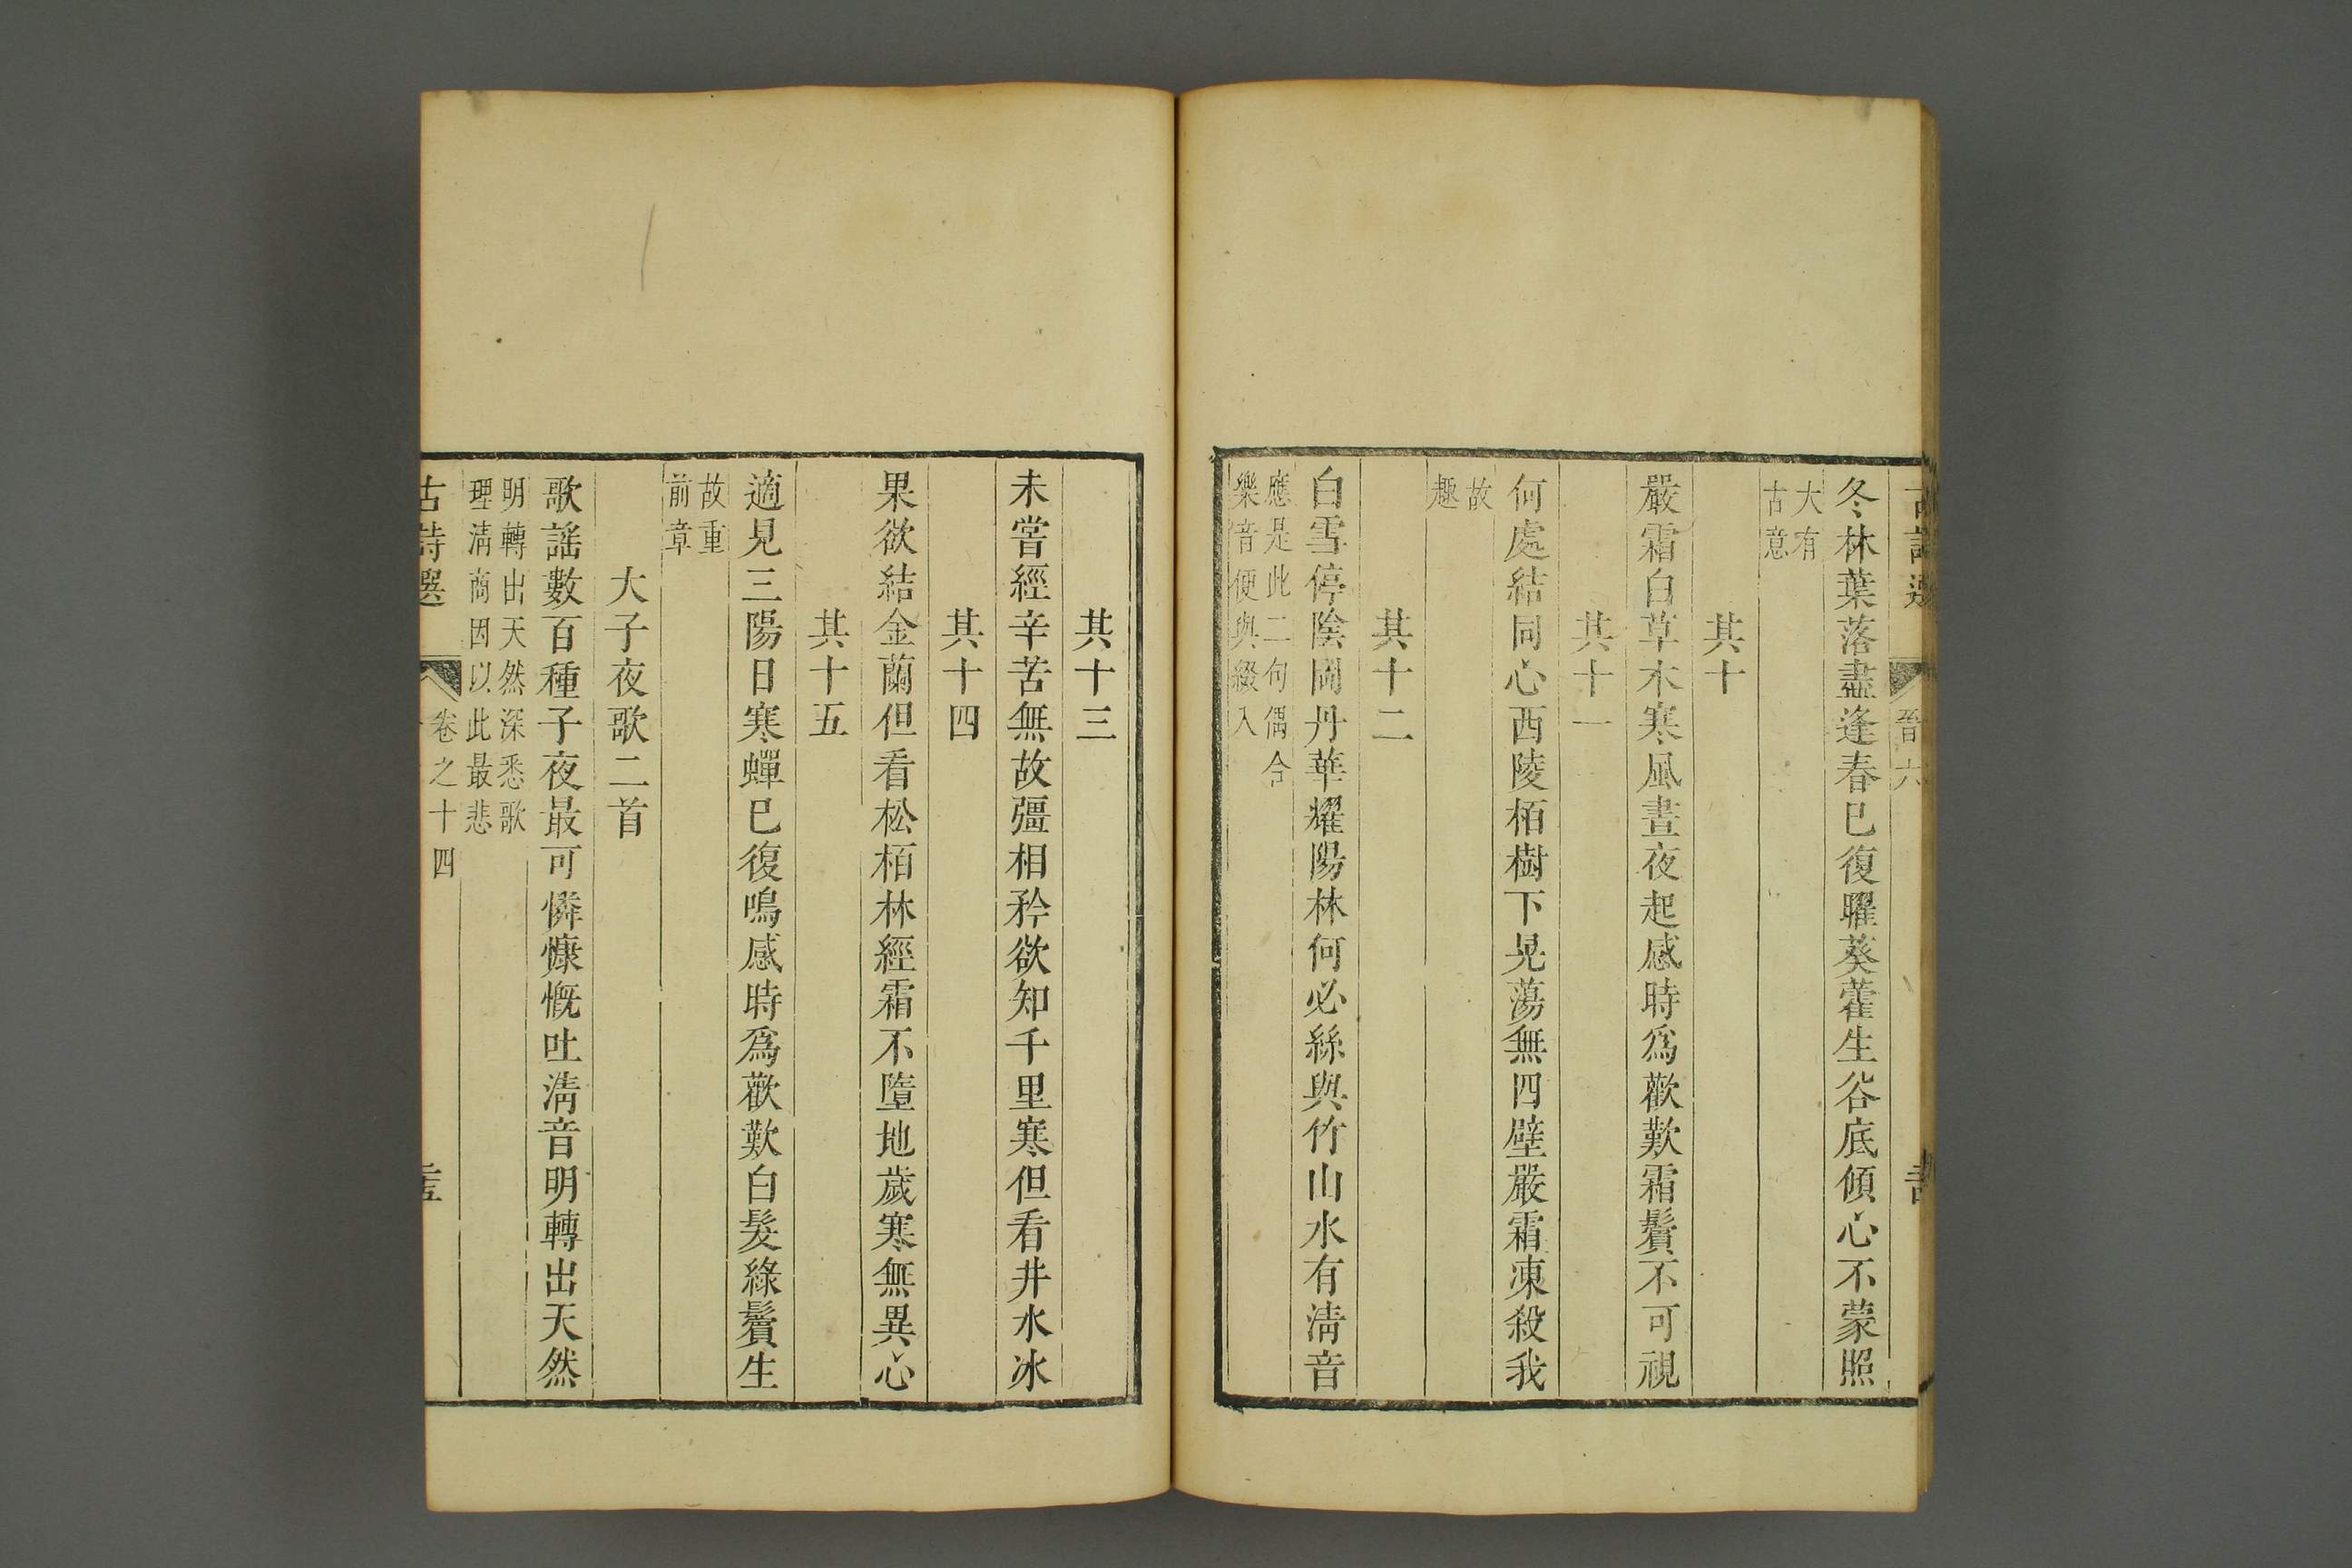 古詩選 晉六
冬林葉落盡逢春巳復曜葵藿生谷底傾心不蒙照
大有
古意
其十
嚴霜白草木寒風晝夜起感時爲歡歎霜鬢不可視
其十一
何處結同心西陵栢樹下晃蕩無四壁嚴霜凍殺我
故
趣
其十二
白雪停陰岡丹華耀陽林何必絲與竹山水有淸音
應是此二句偶合
樂音便與綴入
其十三
未嘗經辛苦無故彊相矜欲知千里寒但看井水冰
其十四
果欲結金蘭但看松栢林經霜不墮地歲寒無異心
其十五
適見三陽日寒蟬巳復鳴感時爲歡歎白髮綠鬢生
故重
前章
大子夜歌二首
歌謠數百種子夜最可憐慷慨吐淸音明轉出天然
明轉出天然深悉歌
理淸商因以此最悲
古詩選 卷之十四